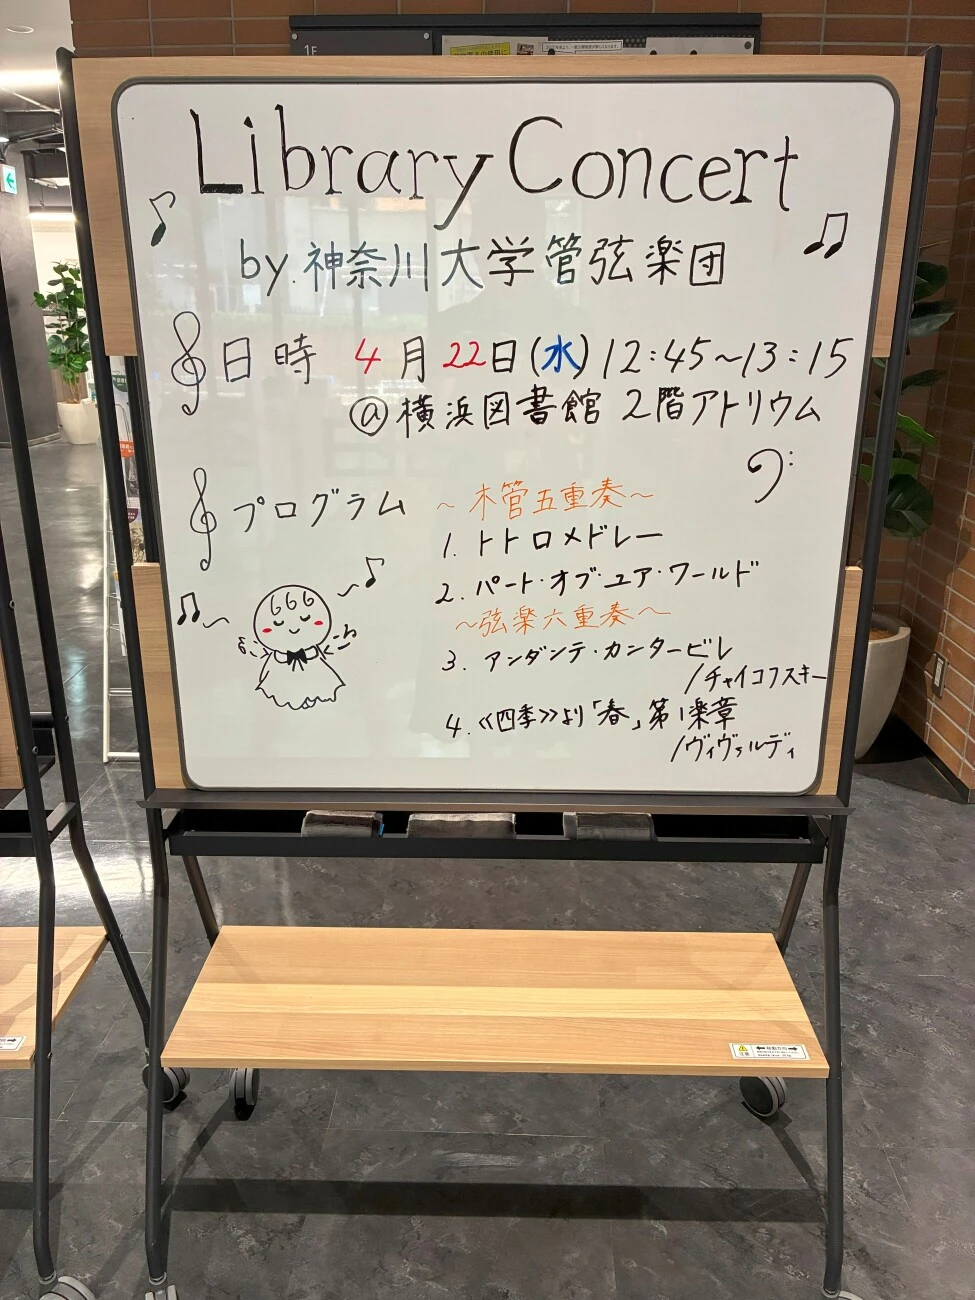 1F
Library Concert
by 神奈川大学管弦楽団
日時 4月22日(水) 12:45~13:15
@横浜図書館 2階アトリウム
プログラム
~木管五重奏~
1. トトロメドレー
2. パート・オブ・ユア・ワールド
~弦楽六重奏~
3. アンダンテ・カンタービレ
/チャイコフスキー
4. 《四季》より「春」第1楽章
/ヴィヴァルディ
注意